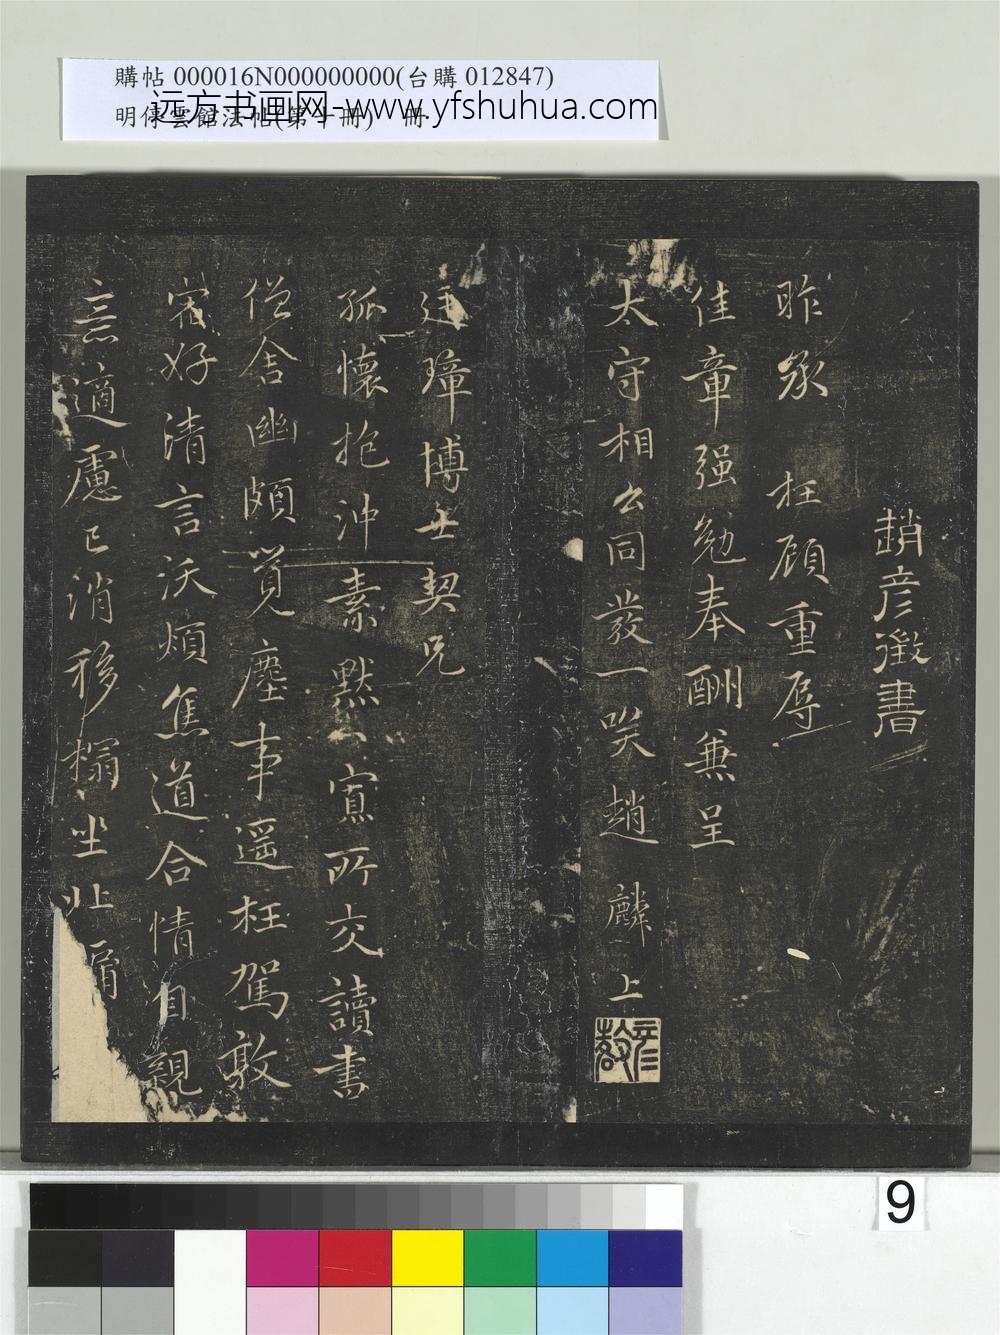 購帖 000016N000000000(台購 012847)
明停雲館法帖(第十冊) 冊
远方书画网-www.yfshuhua.com
趙彦徵書
昨承 枉顧重辱
佳章强勉奉酬兼呈
太守相公同發一笑趙 麟 上
廷璋博士契兄
孤懷抱沖素默寘所交讀書
僧舍幽頗覓塵事遥枉駕敦
宿好清言沃煩焦道合情自親
意適慮已消移榻坐
9